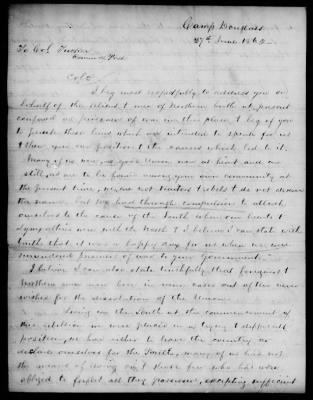 Camp Douglas
27th June 1862
To Col. Tucker
Comm'g Post
Col:
I beg most respectfully to address you on
behalf of the men of Northern birth at present
confined as prisoners of war in this place & beg of you
to peruse these lines which are intended to speak for us
& show you our position & the causes which led to it.
Many of us now, as good Union men at heart and as
still, as are to be found among your own community at
the present time, we are not traitors & rebels & do not deserve
the name, but by through compulsion to attach
ourselves to the cause of the South when our hearts &
sympathies were with the North & I believe I can state with
truth that it was a happy day for us when we were
surrendered prisoners of war to your Government.
I believe I can also state truthfully that foreigners &
Northern men now here in many cases out of the
wishes for the dissolution of the Union.
Living in the South at the commencement of
this rebellion we were placed in a trying & difficult
position, we had either to leave the country or
declare ourselves for the South, many of us had not
the means of doing so & those few who had were
obliged to forfeit all they possessed, excepting sufficient